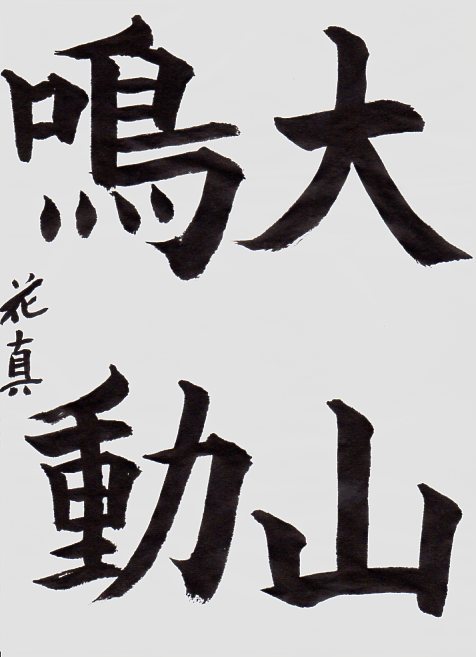 大山
鳴動
花真